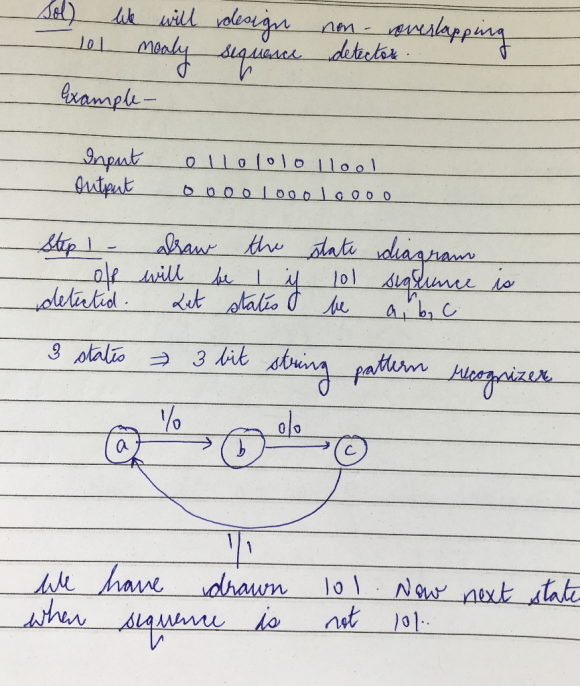 Sol) We will design non-overlapping
101 mealy sequence detector.
Example-
Input 0 1 1 0 1 0 1 0 1 1 0 0 1
Output 0 0 0 0 1 0 0 0 1 0 0 0 0
Step 1 - Draw the state diagram
o/p will be 1 if 101 sequence is
detected. Let states be a, b, c
3 states ⇒ 3 bit string pattern recognizer
1/0 0/0
a b c
1/1
We have drawn 101. Now next state
when sequence is not 101.